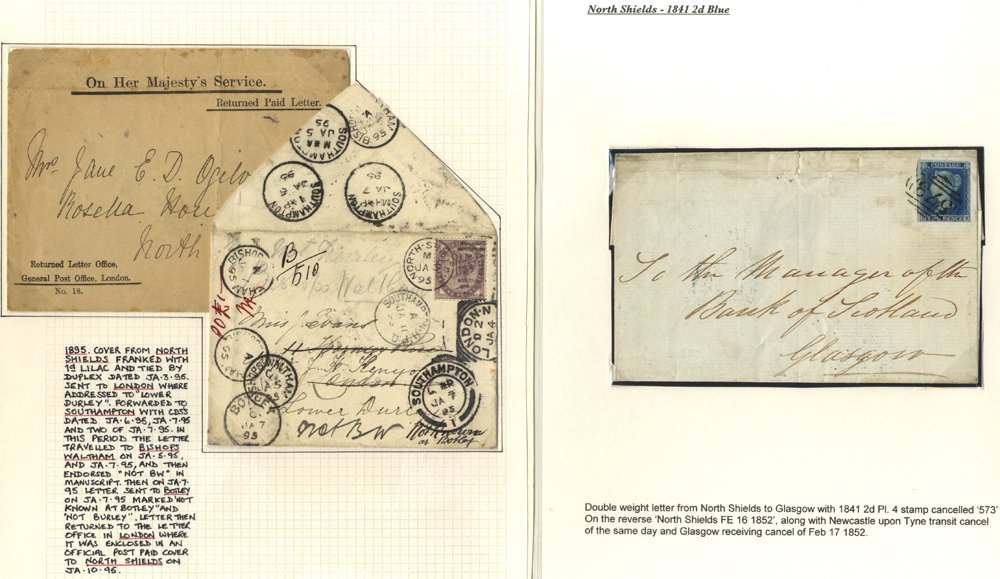 On Her Majesty's Service.
Returned Paid Letter.
Mrs Jane E. D. Ogilv
Rosella Hou
North
Returned Letter Office,
General Post Office, London.
No. 18.
SOUTHAMPTON
JA 5
95
BISHOP
WALTHAM
95
SOUTHAMPTON
JA 6
95
SOUTHAMPTON
JA 7
95
B
510
NORTH-SHIELDS
JA
95
SOUTHAMPTON
A
JA 11
LONDON
D 2
JA 4
Miss Evans
Lower Durley
Not BW
Not Known
at Botley
BOTLEY
JA 7
95
SOUTHAMPTON
JA 7
95
1
1895. COVER FROM NORTH
SHIELDS FRANKED WITH
1D LILAC AND TIED BY
DUPLEX DATED JA·3·95.
SENT TO LONDON WHERE
ADDRESSED TO "LOWER
DURLEY". FORWARDED TO
SOUTHAMPTON WITH CDSS
DATED JA·6·95, JA·7·95
AND TWO OF JA·7·95. IN
THIS PERIOD THE LETTER
TRAVELLED TO BISHOPS
WALTHAM ON JA·5·95,
AND JA·7·95, AND THEN
ENDORSED "NOT BW" IN
MANUSCRIPT. THEN ON JA·7·
95 LETTER SENT TO BOTLEY
ON JA·7·95 MARKED 'NOT
KNOWN AT BOTLEY" AND
'NOT BURLEY'. LETTER THEN
RETURNED TO THE LETTER
OFFICE IN LONDON WHERE
IT WAS ENCLOSED IN AN
OFFICIAL POST PAID COVER
TO NORTH SHIELDS ON
JA·10·95.
North Shields - 1841 2d Blue
POSTAGE
TWO PENCE
To the Manager of the
Bank of Scotland
Glasgow
Double weight letter from North Shields to Glasgow with 1841 2d Pl. 4 stamp cancelled '573'
On the reverse 'North Shields FE 16 1852', along with Newcastle upon Tyne transit cancel
of the same day and Glasgow receiving cancel of Feb 17 1852.